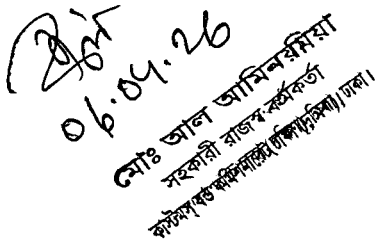 06.04.26
মোঃ আল আমিন মিয়া
সহকারী রাজস্ব কর্মকর্তা
কাস্টমস বন্ড কমিশনারেট, ঢাকা (দক্ষিণ), ঢাকা।